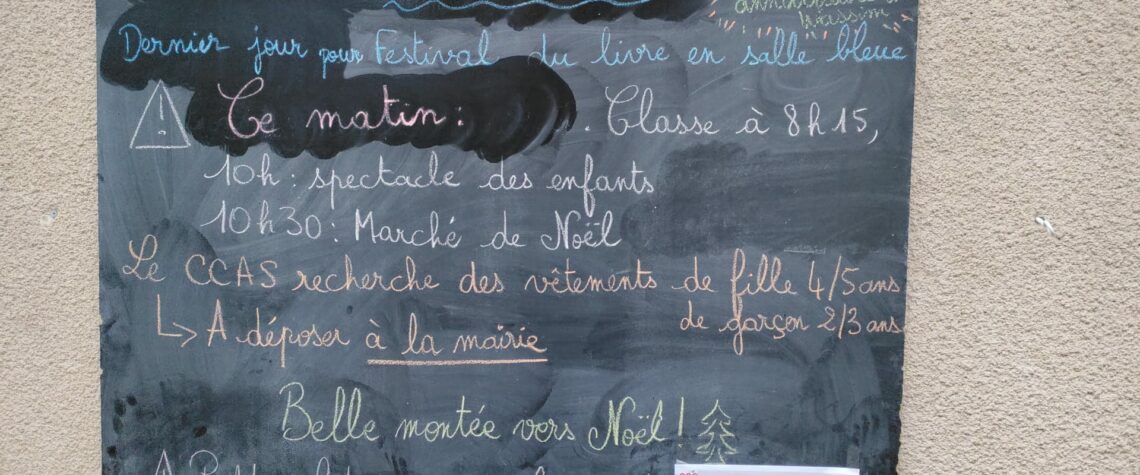 anniversaire
Wassim
Dernier jour pour Festival du livre en salle bleue
Ce matin : . Classe à 8h15,
10h : spectacle des enfants
10h30 : Marché de Noël
Le CCAS recherche des vêtements de fille 4/5 ans
de garçon 2/3 ans
↳ A déposer à la mairie
Belle montée vers Noël !